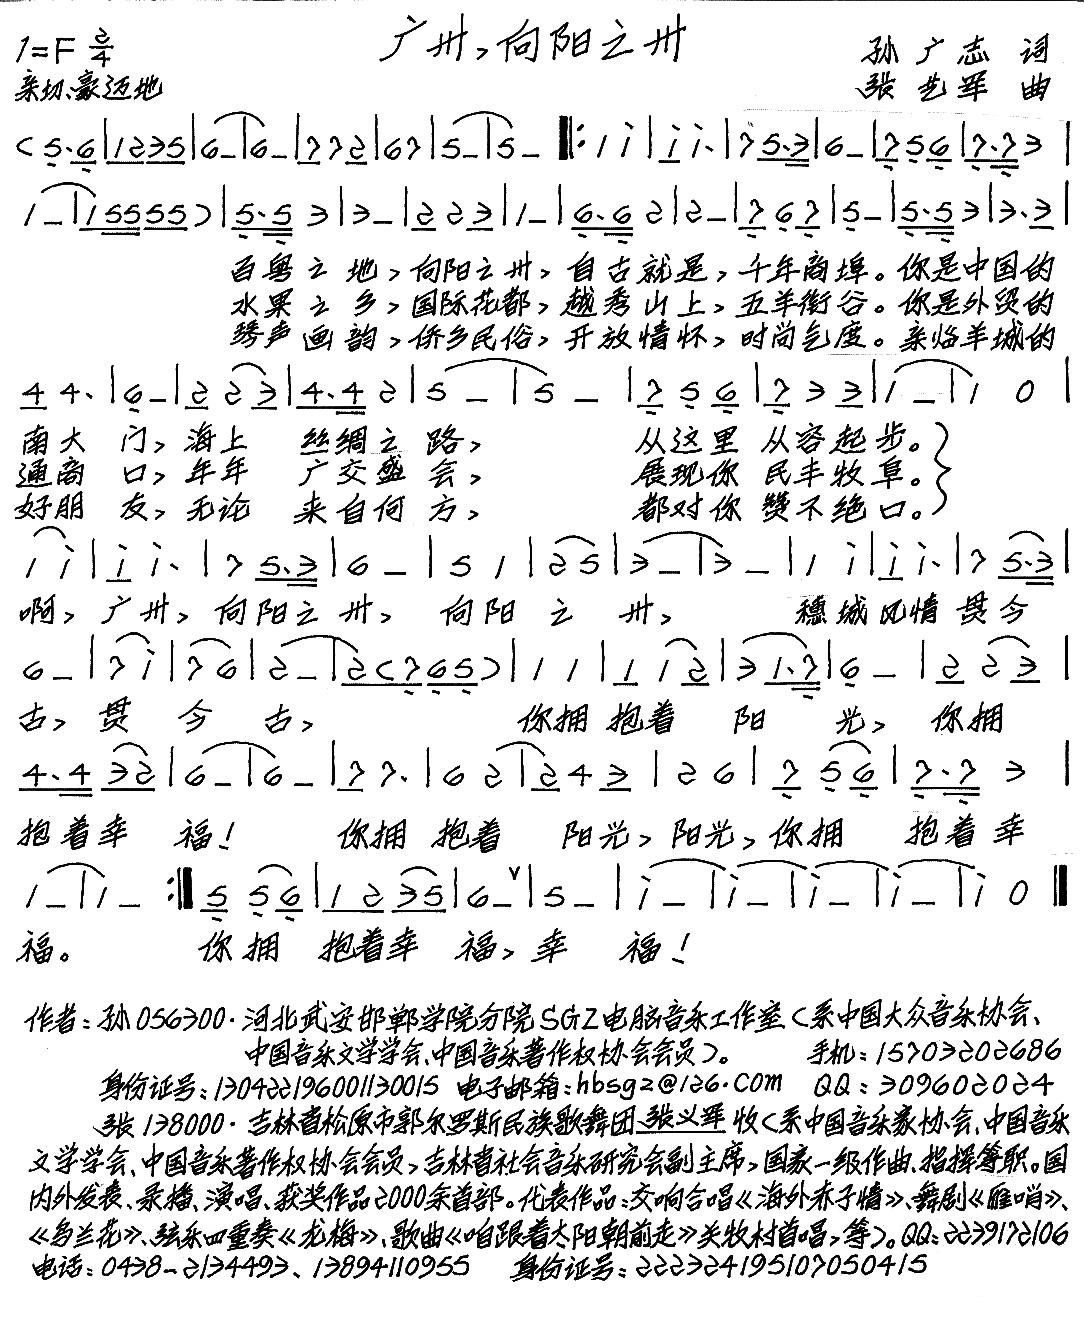 广州，向阳之州
1=F 2/4
亲切、豪迈地
孙广志 词
张艺军 曲
(5·6|1235|6–|6–|772|67|5–|5–‖:1i|ii·|75·3|6–|756|7·73|
1–|15555)|5·53|3–|223|1–|6·62|2–|767|5–|5·53|3·3|
百粤之地，向阳之州，自古就是，千年商埠。你是中国的
水果之乡，国际花都，越秀山上，五羊衔谷。你是外贸的
琴声画韵，侨乡民俗，开放情怀，时尚气度。亲临羊城的
44·|6–|223|4·42|5–|5–|756|733|1–|10|
南大门，海上丝绸之路，从这里从容起步。
通商口，年年广交盛会，展现你民丰牧阜。
好朋友，无论来自何方，都对你赞不绝口。
ii|ii·|75·3|6–|51|25|3–|3–|1i|ii·|75·3|
啊，广州，向阳之州，向阳之州，穗城风情贯今
6–|7i|76|2–|2(765)|11|112|31·7|6–|223|
古，贯今古，你拥抱着阳光，你拥
4·432|6–|6–|77·|62|243|26|756|7·73|
抱着幸福！你拥抱着阳光，阳光，你拥抱着幸
1–|1–:‖556|1235|6–∨|5–|i–|i–|i–|i–|i0‖
福。你拥抱着幸福，幸福！
作者：孙056300·河北武安邯郸学院分院SGZ电脑音乐工作室(系中国大众音乐协会、
中国音乐文学学会、中国音乐著作权协会会员)。 手机：15703202686
身份证号：130422196001130015 电子邮箱：hbsgz@126.com QQ：309602024
张138000·吉林省松原市郭尔罗斯民族歌舞团张义军收(系中国音乐家协会、中国音乐
文学学会、中国音乐著作权协会会员，吉林省社会音乐研究会副主席，国家一级作曲、指挥等职。国
内外发表、录播、演唱、获奖作品2000余首部。代表作品：交响合唱《海外赤子情》、舞剧《雁哨》、
《乌兰花》、弦乐四重奏《龙梅》、歌曲《咱跟着太阳朝前走》关牧村首唱，等)。QQ：2239172106
电话：0438-2134493、13894110955 身份证号：222324195107050415